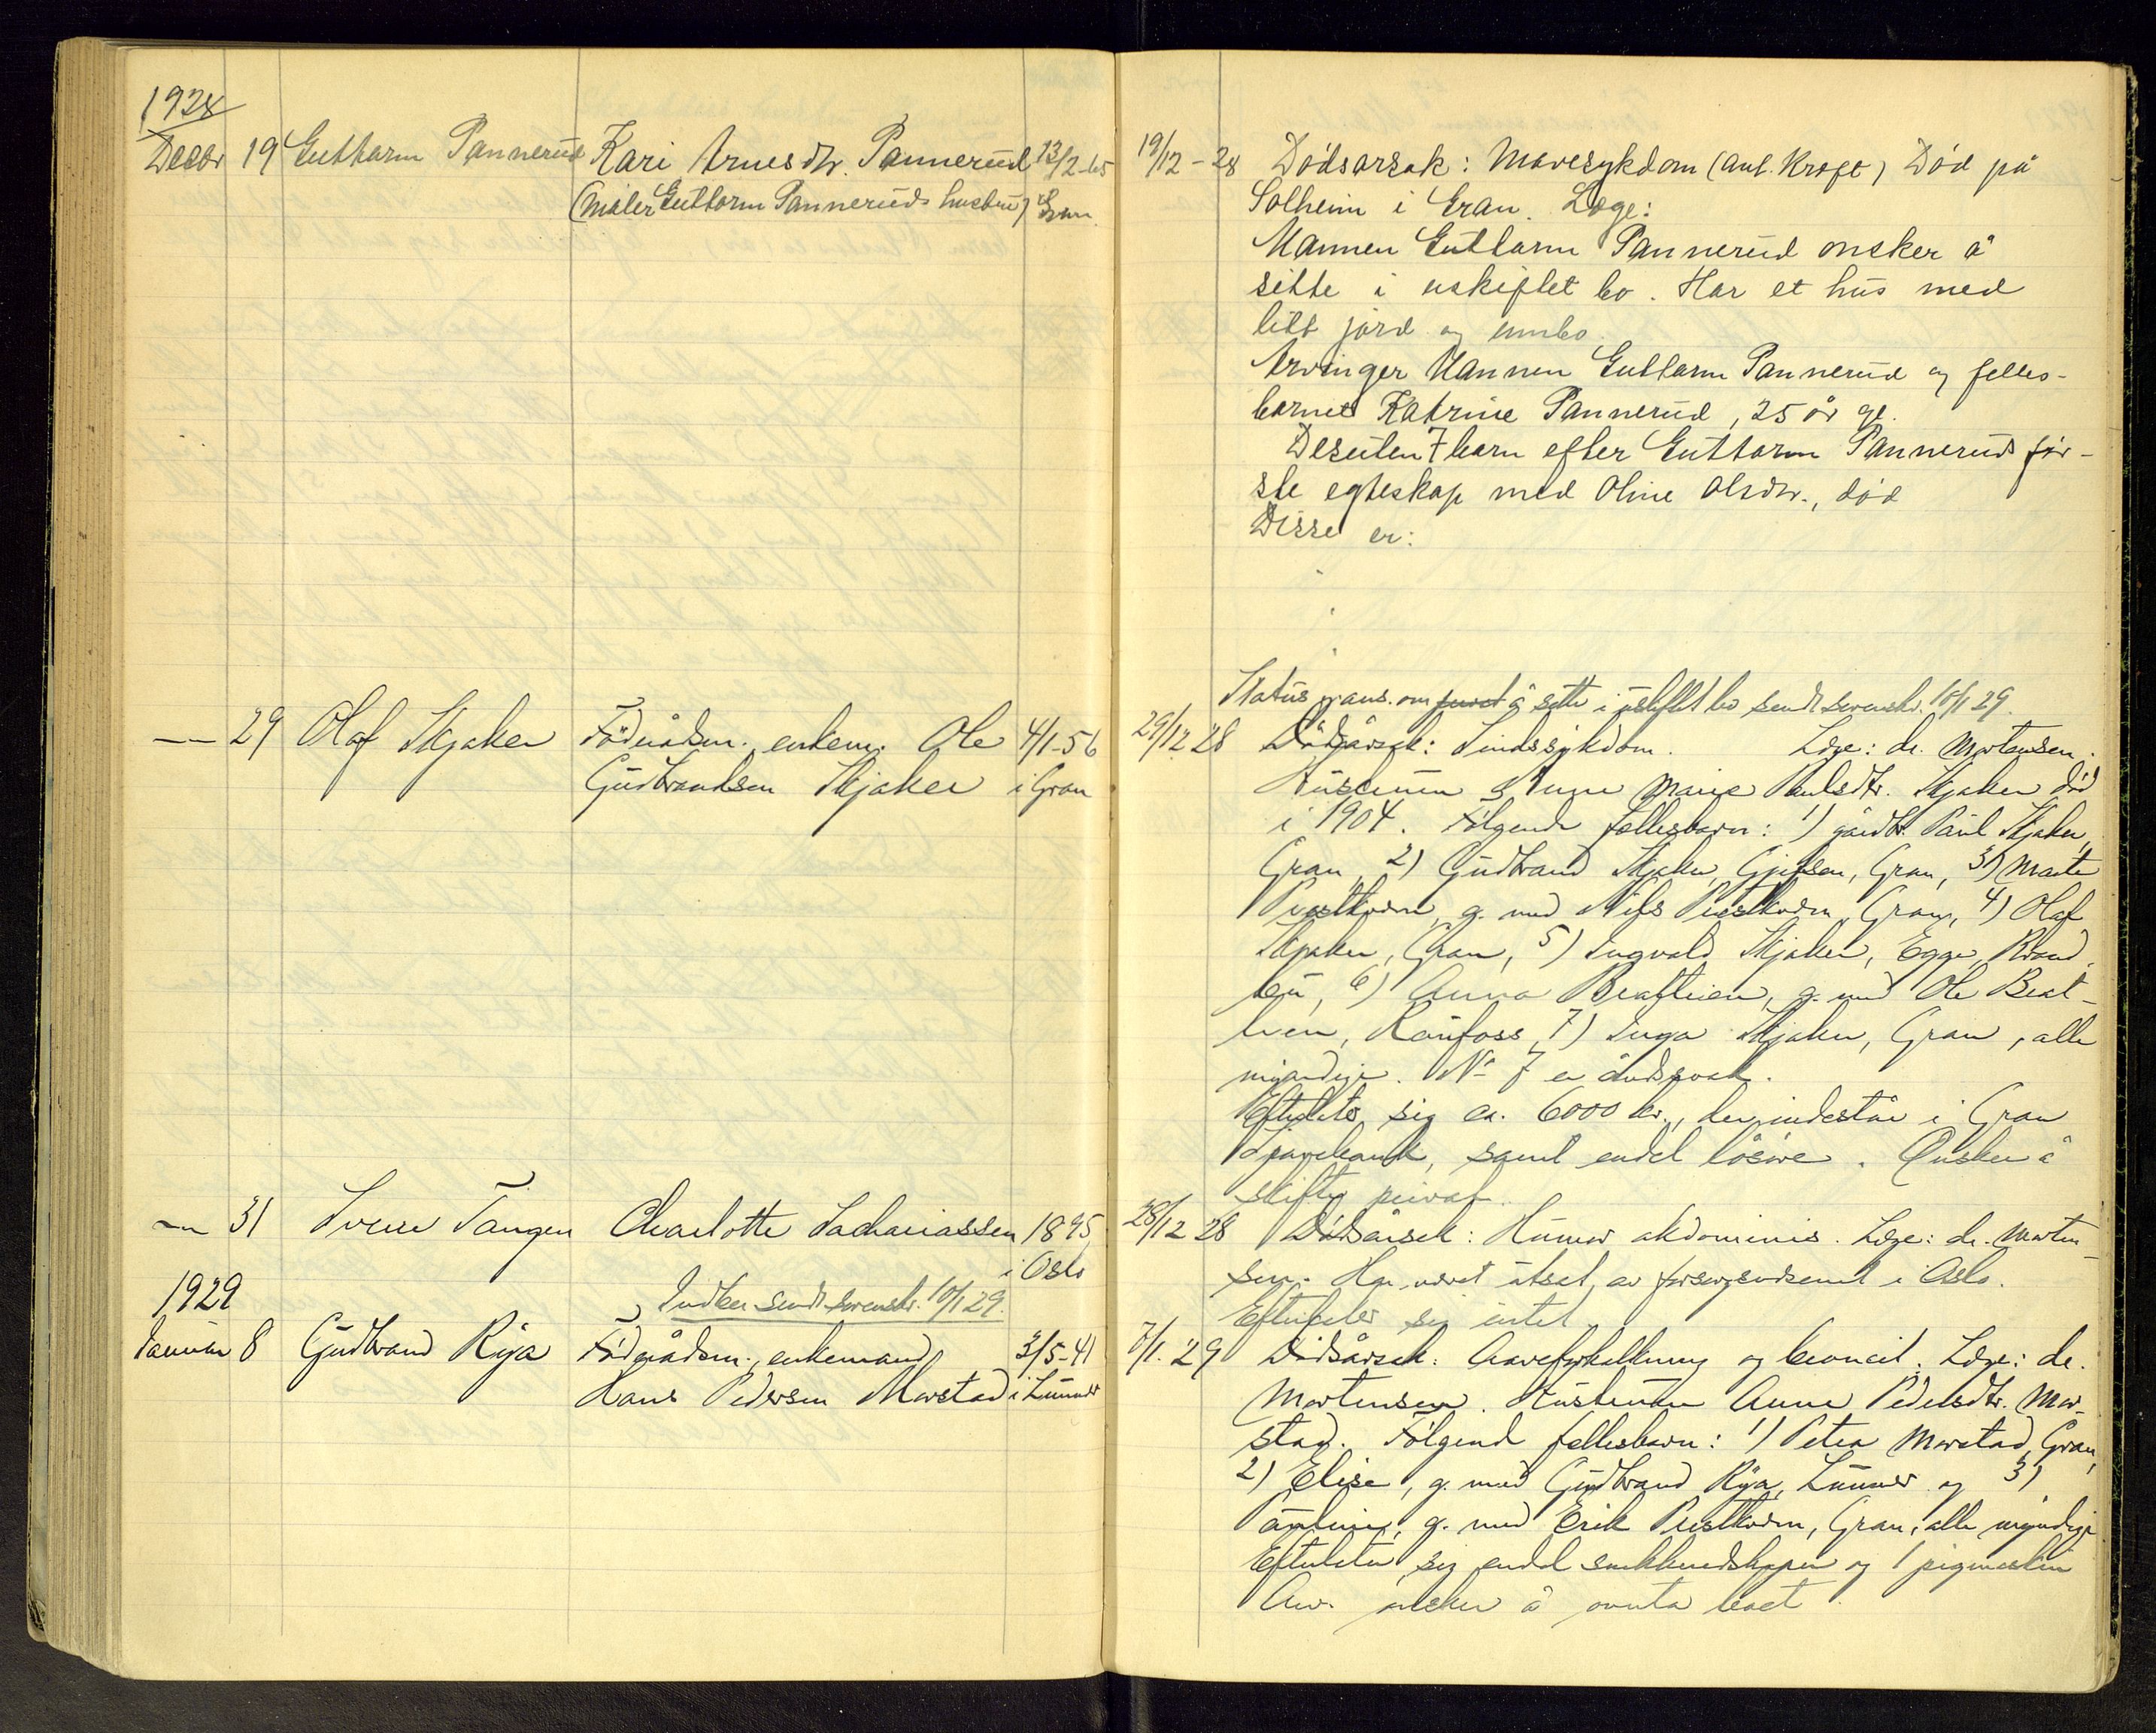 1928
Decbr 19 Guttorm Pannerud Kari Arnesdtr. Pannerud 13/2-65
(maler Guttorm Panneruds hustru) i Gran
19/12-28 Dödsarsak: Mavesykdom (ant. Kræft) Död på
Solheim i Gran. Læge:
Mannen Guttorm Pannerud ønsker å
sitte i uskiftet bo. Har et hus med
litt jord og innbo.
Arvinger Mannen Guttorm Pannerud og felles-
barnet Katrine Pannerud, 25 år gl.
Desuten 7 barn efter Guttorm Panneruds för-
ste egteskap med Oline Olsdtr., död
Disse er:
Status o ans. om å sitte i uskiftet bo sendt sorenskr. 10/1 29.
-"- 29 Olaf Skjaker Föderådsm. enkem. Ole 4/1-56
Gudbrandsen Skjaker i Gran
29/12 28 Dödsårsak: Sindssykdom. Læge: dr. Mortensen.
Hustruen Anne Marie Paulsdtr. Skjaker död
i 1904. Fölgende fellesbarn: 1) gårdbr. Paul Skjaker,
Gran, 2) Gudbrand Skjaker, Gran, 3) Marte
Prestkvern, g. med Nils Prestkvern, Gran, 4) Olaf
Skjaker, Gran, 5) Ingvald Skjaker, Egge, Brand-
bu, 6) Anna g. med Ole
Raufoss, 7) Inga Skjaker, Gran, alle
myndige. No 7 er åndssvak.
Efterlater sig ca. 6000 kr., der indestår i Gran
Sparebank, samt endel lösöre. Önsker å
skifte privat.
-"- 31 Sverre Tangen Charlotte Sachariassen 1895
i Oslo
28/12 28 Dödsårsak: abdominis. Læge: dr. Morten-
sen. Har været utsat av forsorgsvæsenet i Oslo.
Efterlater sig intet.
Indber. sendt sorenskr. 10/1 29.
1929
Januar 8 Gudbrand Rya Föderådsm., enkemand 3/5-41
Hans Pedersen Morstad i Lunner
7/1. 29 Dödsårsak: Aareforkalkning og Læge: dr.
Mortensen. Hustruen Anne Pedersdtr. Mor-
stad. Fölgend fellesbarn: 1) Petra Morstad, Gran,
2) Elise, g. med Gudbrand Rya, Lunner og 3)
Pauline, g. med Erik Prestkvern, Gran, alle myndige
Efterlater sig endel snekkerredskaper og 1
Arv. önsker å overta boet.